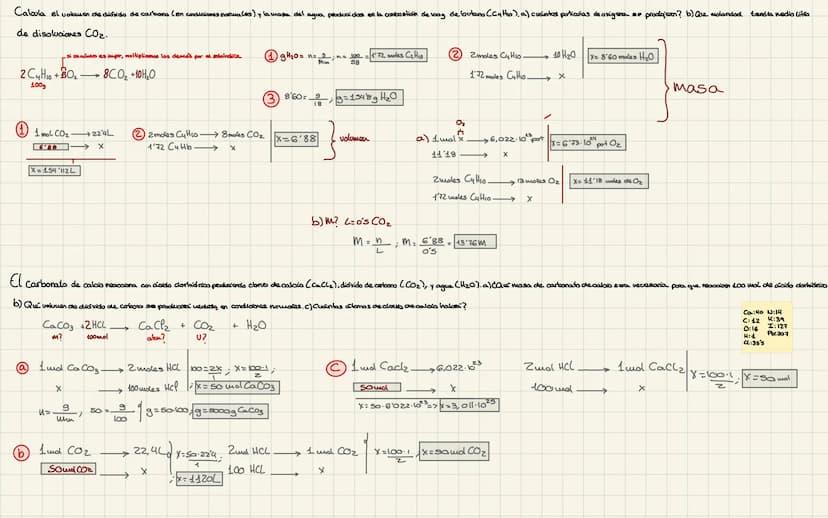 Calcula el volumen de dióxido de carbono (en condiciones normales) y la masa del agua, producidos en la combustión de 100g de butano (C₄H₁₀). a) cuántas partículas de oxígeno se producen? b) Que molaridad tendrá medio litro
de disoluciones CO₂.
si es número es impar, multiplicamos los demás por el subíndice
2C₄H₁₀ + 13O₂ → 8CO₂ + 10H₂O
100g
① gH₂O = n = g/Mm ; n = 100/58 = 1'72 moles C₄H₁₀
② 2moles C₄H₁₀ → 10H₂O
1'72 moles C₄H₁₀ → x
x = 8'60 moles H₂O
③ 8'60 = g/18 , g = 154'8g H₂O
masa
① 1mol CO₂ → 22'4L
6'88 → x
x = 154'112L
② 2moles C₄H₁₀ → 8moles CO₂
1'72 C₄H₁₀ → x
x = 6'88
volumen
O₂
a) 1mol x → 6,022·10²³ part
11'18 → x
x = 6'73·10²⁴ part O₂
2moles C₄H₁₀ → 13moles O₂
1'72moles C₄H₁₀ → x
x = 11'18 moles de O₂
b) M? L=0'5 CO₂
M = n/L ; M = 6'88/0'5 = 13'76M
El carbonato de calcio reacciona con ácido clorhídrico produciendo cloruro de calcio (CaCl₂), dióxido de carbono (CO₂), y agua (H₂O). a) Qué masa de carbonato de calcio será necesaria para que reaccionen 100 mol de ácido clorhídrico
b) Qué volumen de dióxido de carbono se producirá en condiciones normales. c) Cuántos átomos de cloruro de calcio habrán?
CaCO₃ + 2HCL → CaCl₂ + CO₂ + H₂O
m? 100mol atm? V?
Ca:40 N:14
C:12 K:39
O:16 I:127
H:1 Pb:207
Cl:35'5
ⓐ 1mol CaCO₃ → 2moles HCl
x → 100moles HCl
100 = 2x/1 ; x = 100·1/2
x = 50 mol CaCO₃
n = g/Mm , 50 = g/100 g = 50·100, g = 5000g CaCO₃
ⓒ 1mol CaCl₂ → 6,022·10²³
50mol → x
x = 50·6'022·10²³ => x = 3,011·10²⁵
2mol HCL → 1mol CaCL₂
100mol → x
x = 100·1/2 ; x = 50mol
ⓑ 1mol CO₂ → 22,4L
50mol CO₂ → x
x = 50·22'4/1
; x = 1120L
2mol HCL → 1mol CO₂
100 HCL → x
x = 100·1/2 , x = 50mol CO₂